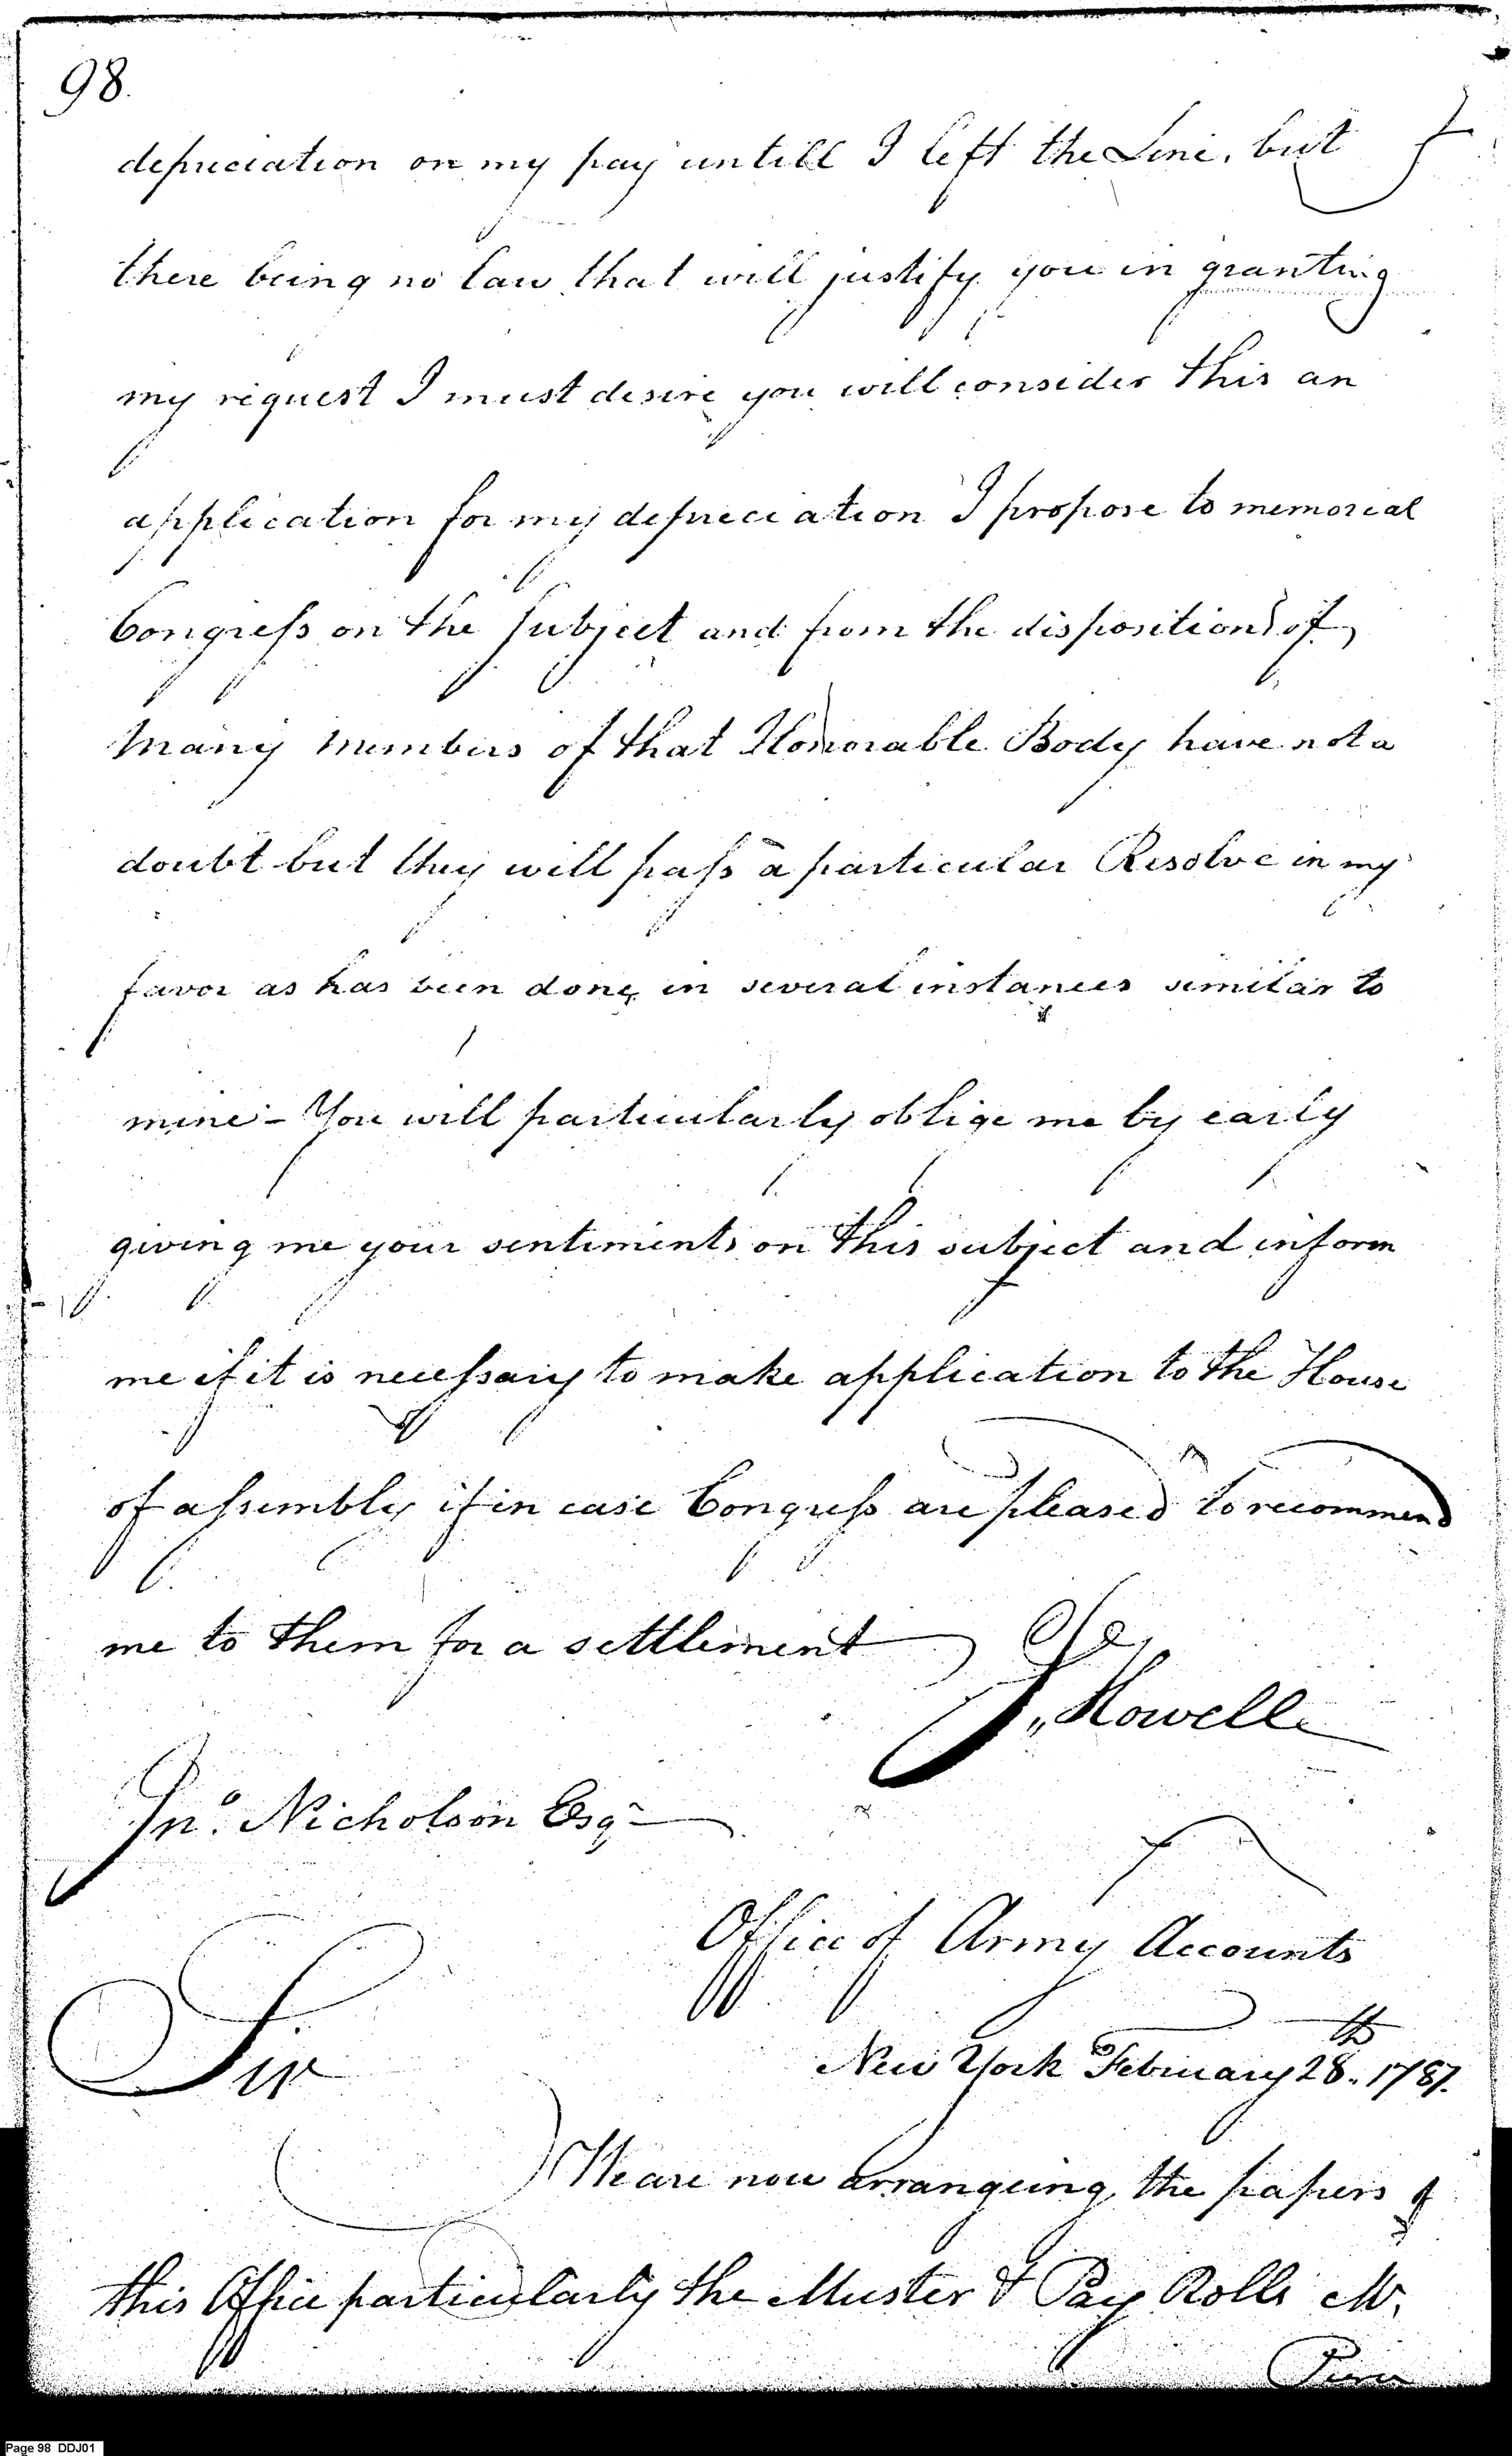 98.
depreciation on my pay untill I left the Line, but
there being no law that will justify you in granting
my request I must desire you will consider this an
application for my depreciation I propose to memorial
Congress on the subject and from the dispositions of
many members of that Honorable Body have not a
doubt but they will pass a particular Resolve in my
favor as has been done in several instances similar to
mine - You will particularly oblige me by early
giving me your sentiments on this subject and inform
me if it is necessary to make application to the House
of assembly if in case Congress are pleased to recommend
me to them for a settlement
J,, Howell
Jno. Nicholson Esqr
Office of Army Accounts
New York February 28th. 1787.
Sir
We are now arrangeing the papers of
this Office particularly the Muster & Pay Rolls Mr.
Page 98 DDJ01